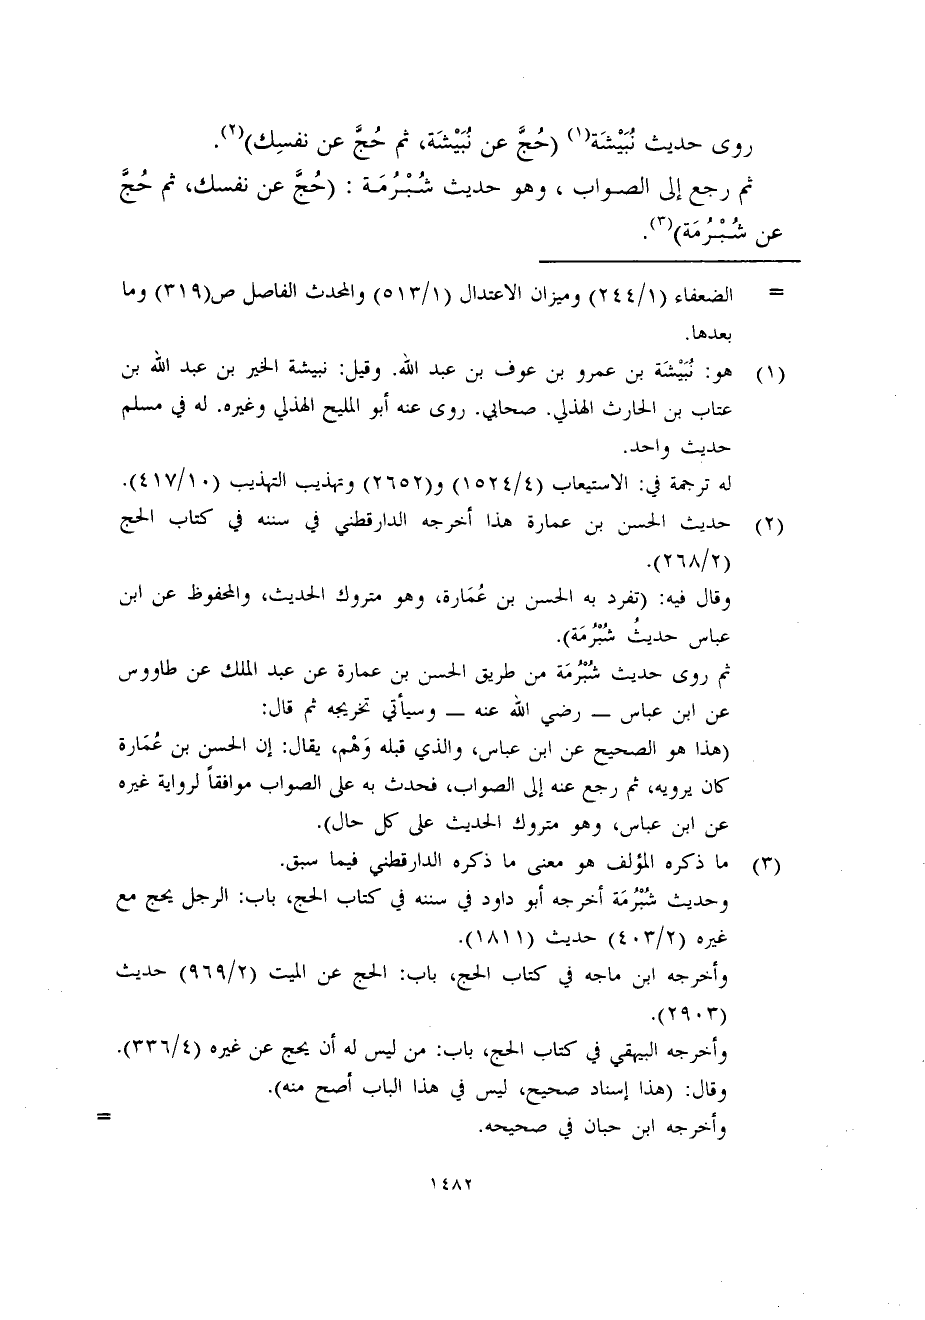 روى حديث نُبَيْشَة(١) (حُجَّ عن نُبَيْشَة، ثم حُجَّ عن نفسِك)(٢).
ثم رجع إلى الصواب ، وهو حديث شُبْرُمَة : (حُجَّ عن نفسك، ثم حُجَّ
عن شُبْرُمَة)(٣).
= الضعفاء (٢٤٤/١) وميزان الاعتدال (٥١٣/١) والمحدث الفاصل ص(٣١٩) وما
بعدها.
(١) هو: نُبَيْشَة بن عمرو بن عوف بن عبد الله. وقيل: نبيشة الخير بن عبد الله بن
عتاب بن الحارث الهذلي. صحابي. روى عنه أبو المليح الهذلي وغيره. له في مسلم
حديث واحد.
له ترجمة في: الاستيعاب (١٥٢٤/٤) و(٢٦٥٢) وتهذيب التهذيب (٤١٧/١٠).
(٢) حديث الحسن بن عمارة هذا أخرجه الدارقطني في سننه في كتاب الحج
(٢٦٨/٢).
وقال فيه: (تفرد به الحسن بن عُمَارة، وهو متروك الحديث، والمحفوظ عن ابن
عباس حديثُ شُبْرُمَة).
ثم روى حديث شُبْرُمَة من طريق الحسن بن عمارة عن عبد الملك عن طاووس
عن ابن عباس ــ رضي الله عنه ــ وسيأتي تخريجه ثم قال:
(هذا هو الصحيح عن ابن عباس، والذي قبله وَهْم، يقال: إن الحسن بن عُمَارة
كان يرويه، ثم رجع عنه إلى الصواب، فحدث به على الصواب موافقاً لرواية غيره
عن ابن عباس، وهو متروك الحديث على كل حال).
(٣) ما ذكره المؤلف هو معنى ما ذكره الدارقطني فيما سبق.
وحديث شُبْرُمَة أخرجه أبو داود في سننه في كتاب الحج، باب: الرجل يحج مع
غيره (٤٠٣/٢) حديث (١٨١١).
وأخرجه ابن ماجه في كتاب الحج، باب: الحج عن الميت (٩٦٩/٢) حديث
(٢٩٠٣).
وأخرجه البيهقي في كتاب الحج، باب: من ليس له أن يحج عن غيره (٣٣٦/٤).
وقال: (هذا إسناد صحيح، ليس في هذا الباب أصح منه).
وأخرجه ابن حبان في صحيحه. =
١٤٨٢